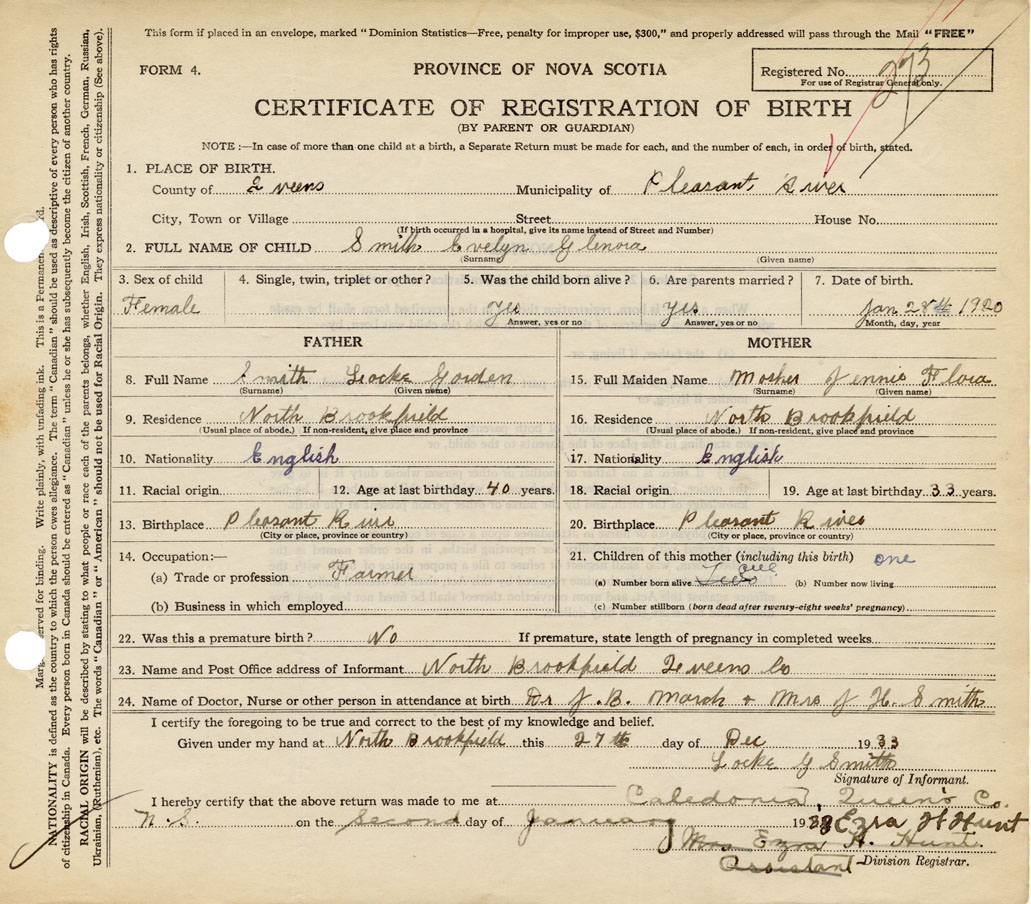 This form if placed in an envelope, marked "Dominion Statistics—Free, penalty for improper use, $300," and properly addressed will pass through the Mail "FREE"
FORM 4.
PROVINCE OF NOVA SCOTIA
Registered No. 273
For use of Registrar General only.
CERTIFICATE OF REGISTRATION OF BIRTH
(BY PARENT OR GUARDIAN)
NOTE :—In case of more than one child at a birth, a Separate Return must be made for each, and the number of each, in order of birth, stated.
1. PLACE OF BIRTH.
County of Queens Municipality of Pleasant River
City, Town or Village Street House No.
(If birth occurred in a hospital, give its name instead of Street and Number)
2. FULL NAME OF CHILD Smith Evelyn Glenora
(Surname) (Given name)
3. Sex of child 4. Single, twin, triplet or other ? 5. Was the child born alive ? 6. Are parents married ? 7. Date of birth.
Female yes yes Jan 28th 1920
Answer, yes or no Answer, yes or no Month, day, year
FATHER MOTHER
8. Full Name Smith Locke Gorden 15. Full Maiden Name Mosher Jennie Flora
(Surname) (Given name) (Surname) (Given name)
9. Residence North Brookfield 16. Residence North Brookfield
(Usual place of abode.) If non-resident, give place and province (Usual place of abode.) If non-resident, give place and province
10. Nationality English 17. Nationality English
11. Racial origin 12. Age at last birthday 40 years. 18. Racial origin 19. Age at last birthday 33 years.
13. Birthplace Pleasant River 20. Birthplace Pleasant River
(City or place, province or country) (City or place, province or country)
14. Occupation:— 21. Children of this mother (including this birth) one
(a) Trade or profession Farmer (a) Number born alive (b) Number now living
(b) Business in which employed (c) Number stillborn (born dead after twenty-eight weeks' pregnancy)
22. Was this a premature birth ? No If premature, state length of pregnancy in completed weeks
23. Name and Post Office address of Informant North Brookfield Queens Co
24. Name of Doctor, Nurse or other person in attendance at birth Dr J. B. March + Mrs J H. Smith
I certify the foregoing to be true and correct to the best of my knowledge and belief.
Given under my hand at North Brookfield this 27th day of Dec 1933
Locke G Smith
Signature of Informant.
I hereby certify that the above return was made to me at Caledonia, Queen's Co.
N.S. on the second day of January 19 Ezra H Hunt
Mrs Ezra H. Hunt
Assistant Division Registrar.
Marg erved for binding. Write plainly, with unfading ink. This is a Permanen d.
NATIONALITY is defined as the country to which the person owes allegiance. The term "Canadian" should be used as descriptive of every person who has rights
of citizenship in Canada. Every person born in Canada should be entered as "Canadian" unless he or she has subsequently become the citizen of another country.
RACIAL ORIGIN will be described by stating to what people or race each of the parents belongs, whether English, Irish, Scottish, French, German, Russian,
Ukrainian, (Ruthenian), etc. The words "Canadian" or "American" should not be used for Racial Origin. They express nationality or citizenship (See above).